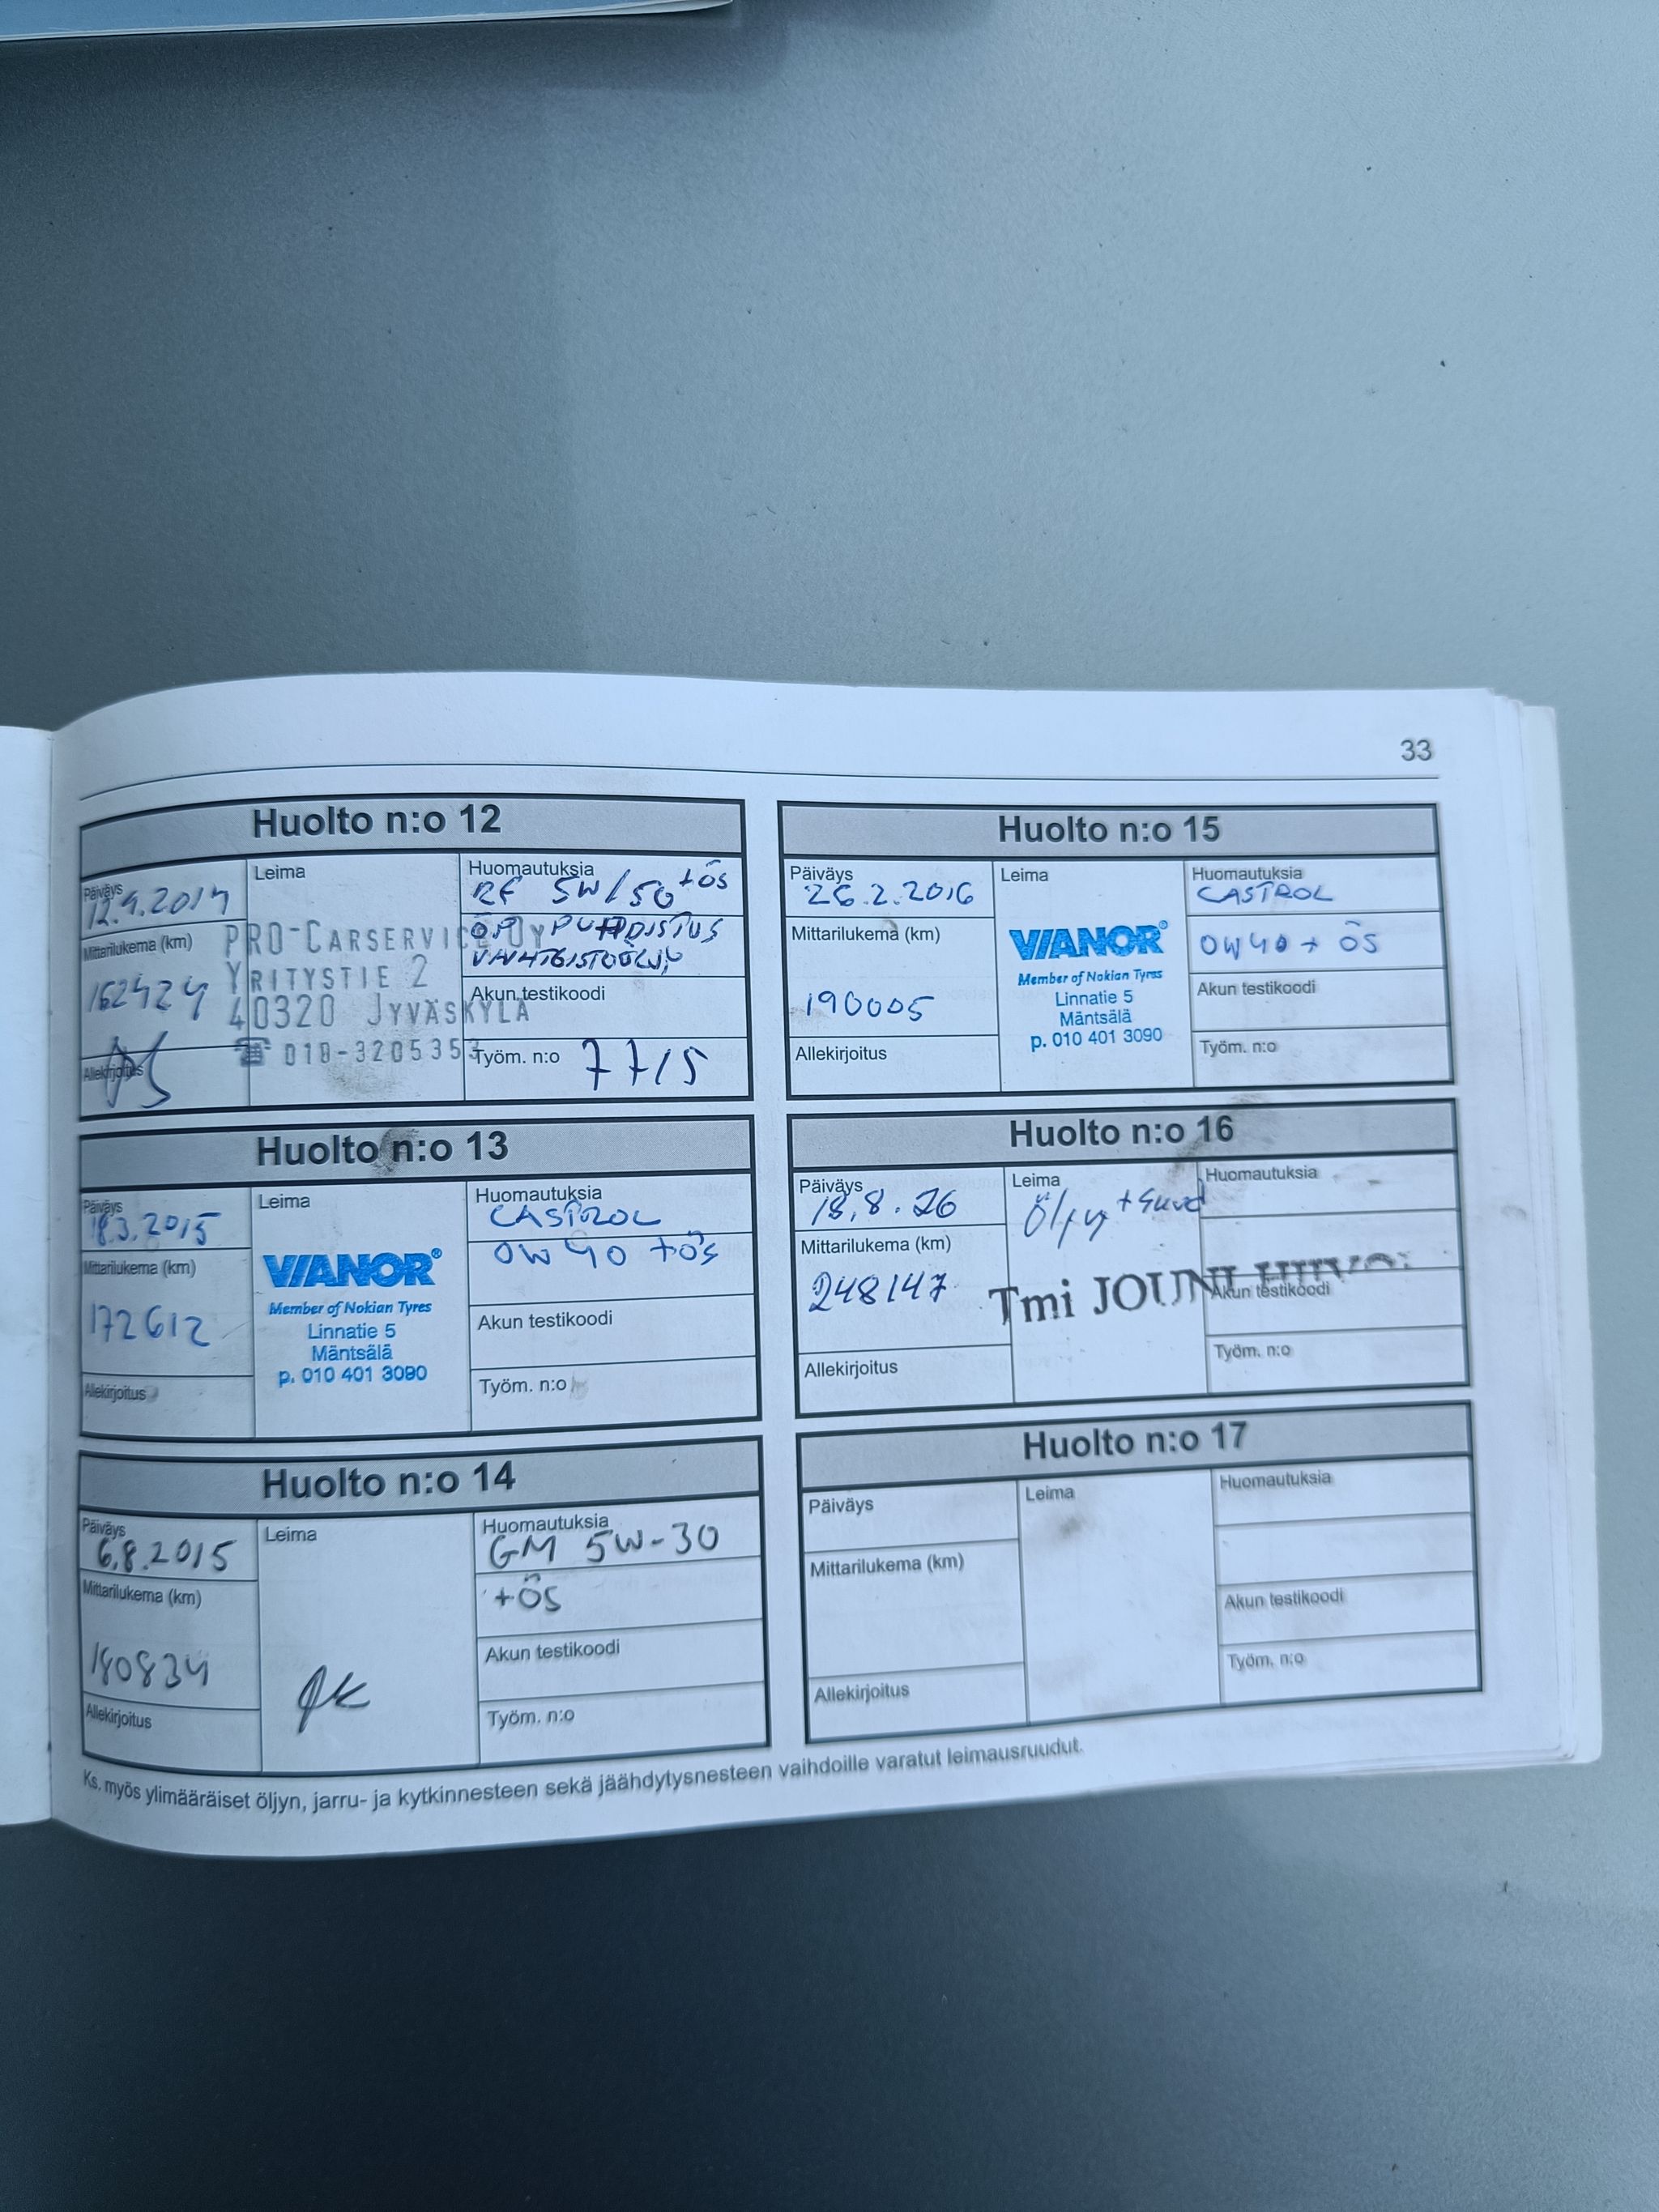 33
Huolto n:o 12
Päiväys
12.9.2014
Mittarilukema (km)
162424
Allekirjoitus
Leima
PRO-CARSERVICE OY
YRITYSTIE 2
40320 JYVÄSKYLÄ
☎ 010-320535
Huomautuksia
5W/50 +ÖS
ÖP PUHDISTUS
VAIHTEISTOÖLJY
Akun testikoodi
Työm. n:o 7715
Huolto n:o 13
Päiväys
18.3.2015
Mittarilukema (km)
172612
Allekirjoitus
Leima
VIANOR®
Member of Nokian Tyres
Linnatie 5
Mäntsälä
p. 010 401 3090
Huomautuksia
CASTROL
0W40 +ÖS
Akun testikoodi
Työm. n:o
Huolto n:o 14
Päiväys
6.8.2015
Mittarilukema (km)
180834
Allekirjoitus
Leima
Huomautuksia
GM 5W-30
+ÖS
Akun testikoodi
Työm. n:o
Huolto n:o 15
Päiväys
26.2.2016
Mittarilukema (km)
190005
Allekirjoitus
Leima
VIANOR®
Member of Nokian Tyres
Linnatie 5
Mäntsälä
p. 010 401 3090
Huomautuksia
CASTROL
0W40 + ÖS
Akun testikoodi
Työm. n:o
Huolto n:o 16
Päiväys
18.8.26
Mittarilukema (km)
248147
Allekirjoitus
Leima
Öljy + suod
Tmi JOUNI
Huomautuksia
Akun testikoodi
Työm. n:o
Huolto n:o 17
Päiväys
Mittarilukema (km)
Allekirjoitus
Leima
Huomautuksia
Akun testikoodi
Työm. n:o
Ks. myös ylimääräiset öljyn, jarru- ja kytkinnesteen sekä jäähdytysnesteen vaihdoille varatut leimausruudut.